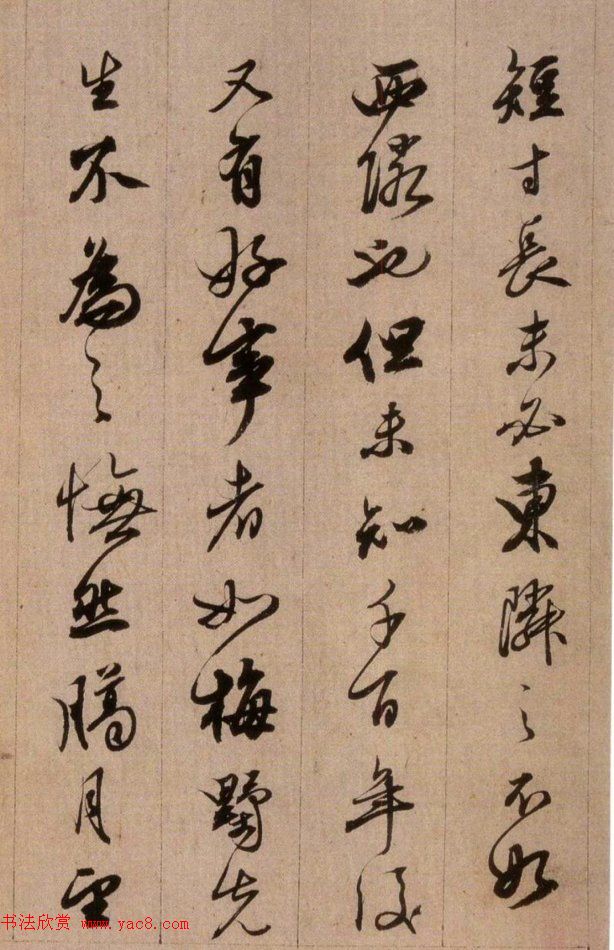 短寸長未必東隣之不如
西隣也但未知千百年後
又有好事者如梅野先
生不為之憮然臈月望
书法欣赏 www.yac8.com